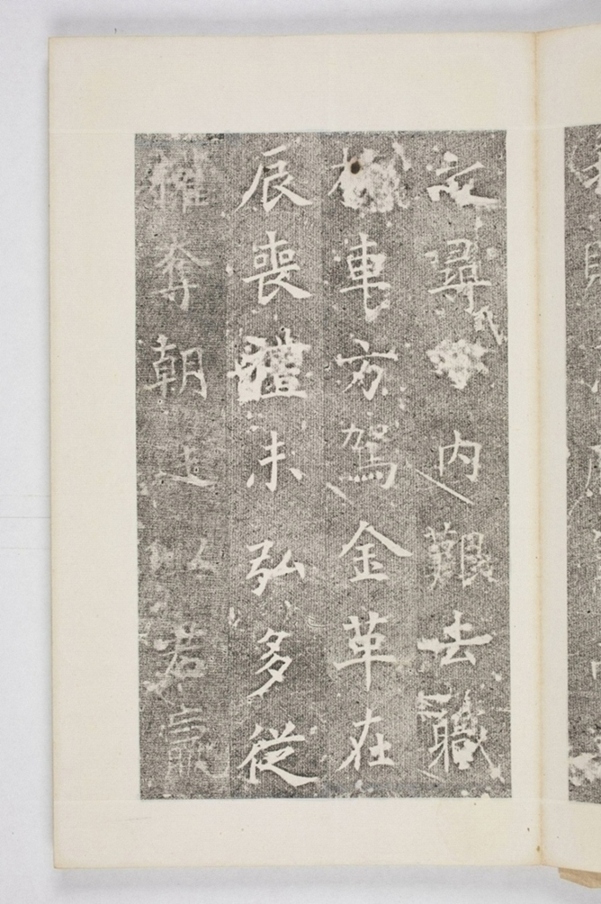 故尋內艱去職
車方駕金革在
辰喪禮未弘多從
權奪朝廷以君羸